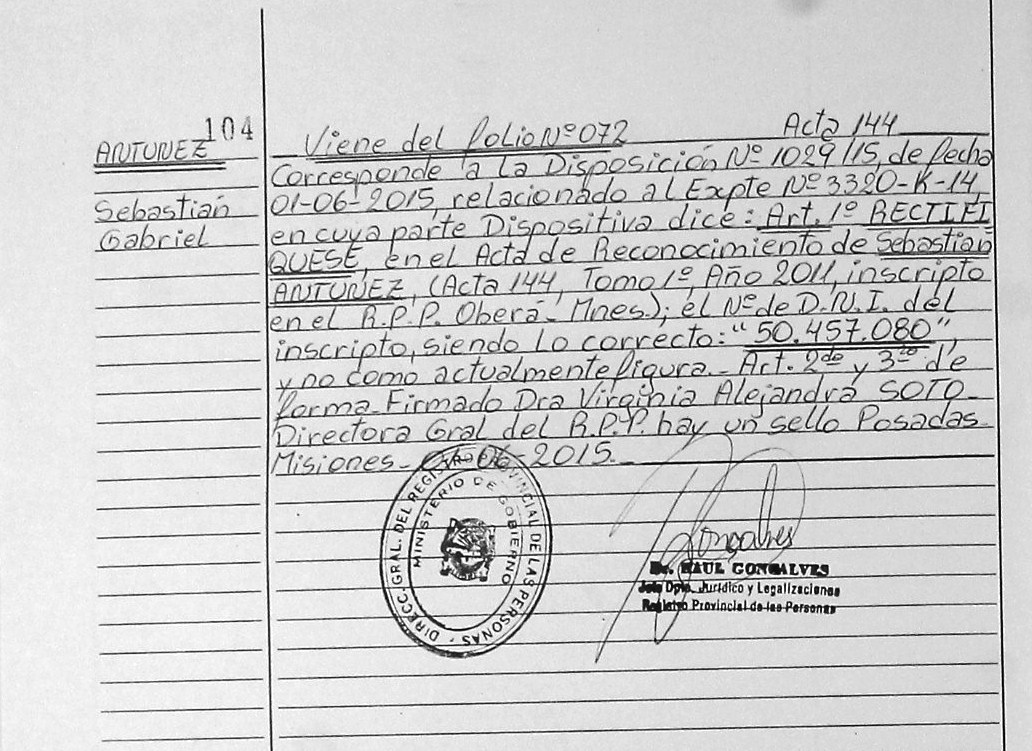 104
ANTUNEZ
Sebastián
Gabriel
Viene del folio Nº 072 Acta 144
Corresponde a la Disposición Nº 1029/15, de fecha
01-06-2015, relacionado al Expte Nº 3320-K-14,
en cuya parte Dispositiva dice: Art. 1º RECTIFI
QUESE, en el Acta de Reconocimiento de Sebastian
ANTUNEZ, (Acta 144, Tomo 1º, Año 2011, inscripto
en el R.P.P. Oberá- Mnes.); el Nº de D.N.I. del
inscripto, siendo lo correcto: "50.457.080",
y no como actualmente figura.- Art. 2do y 3ro de
forma- Firmado Dra Virginia Alejandra SOTO-
Directora Gral del R.P.P. hay un sello Posadas-
Misiones- 06-2015.
DIRECC. GRAL. DEL REGISTRO PROVINCIAL DE LAS PERSONAS -
MINISTERIO DE GOBIERNO
Gonçalves
Dr. RAUL GONCALVES
Jefe Dpto. Jurídico y Legalizaciones
Registro Provincial de las Personas